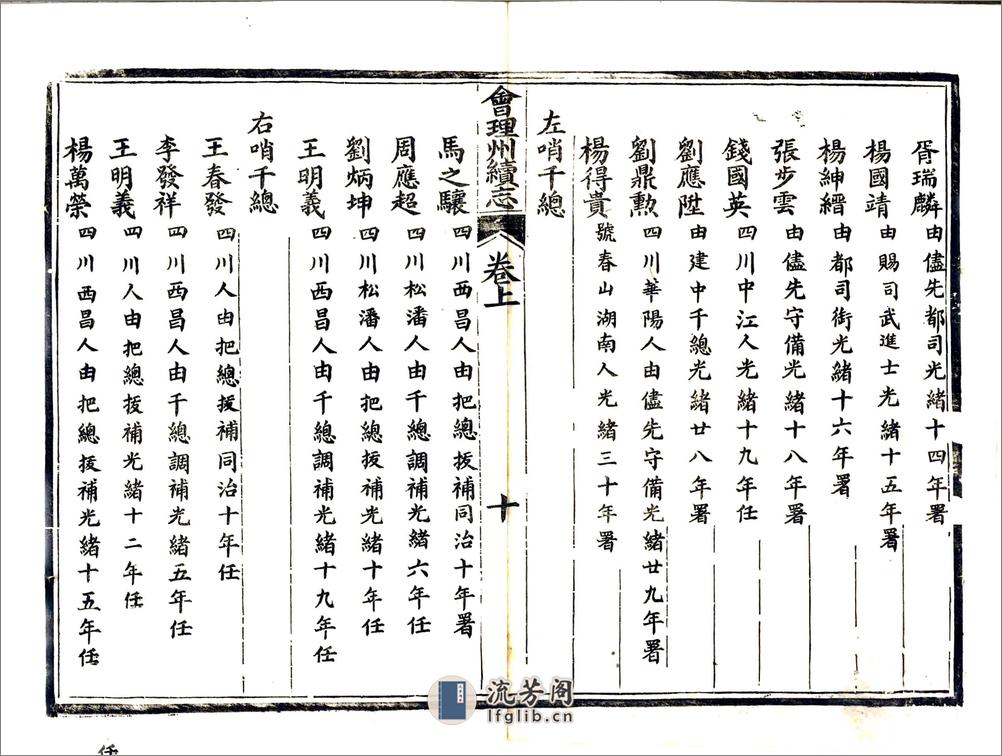 胥瑞麟由儘先都司光緒十四年署
楊國靖由賜司武進士光緒十五年署
楊紳縉由都司銜光緒十六年署
張步雲由儘先守備光緒十八年署
錢國英四川中江人光緒十九年任
劉應陞由建中千總光緒廿八年署
劉鼎勲四川華陽人由儘先守備光緒廿九年署
楊得貴號春山湖南人光緒三十年署
左哨千總
會理州續志 卷上 十
馬之驤四川西昌人由把總拔補同治十年署
周應超四川松潘人由千總調補光緒六年任
劉炳坤四川松潘人由把總拔補光緒十年任
王明義四川西昌人由千總調補光緒十九年任
右哨千總
王春發四川人由把總拔補同治十年任
李發祥四川西昌人由千總調補光緒五年任
王明義四川人由把總拔補光緒十二年任
楊萬榮四川西昌人由把總拔補光緒十五年任
任
流芳阁
lfglib.cn